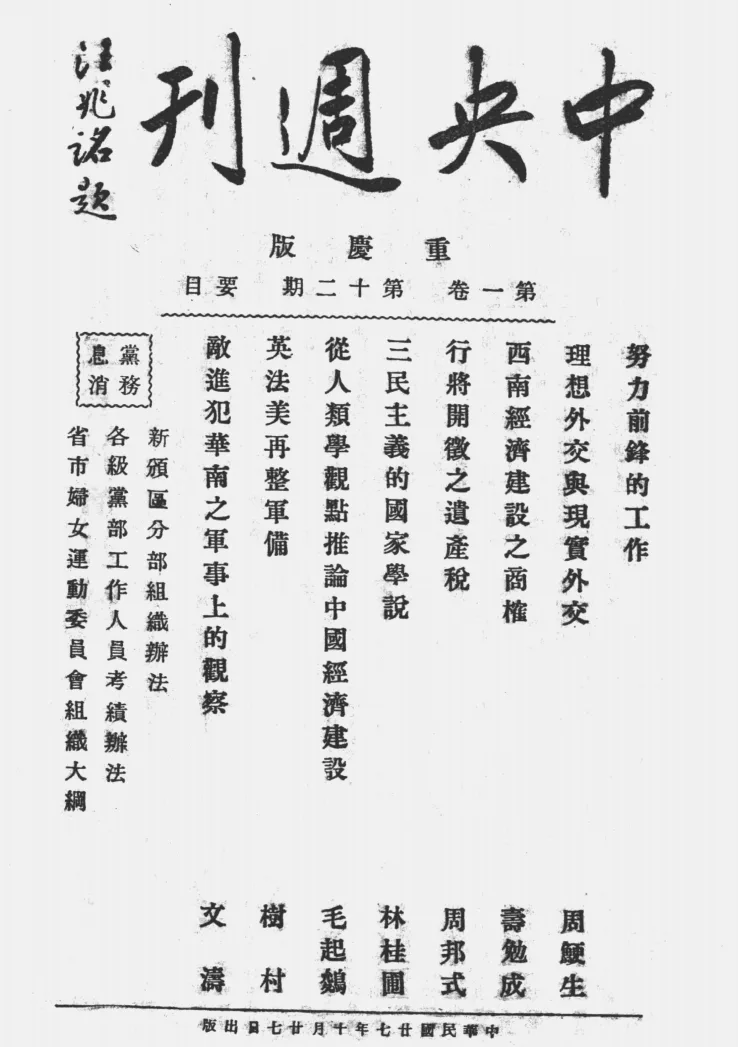 中央週刊
汪兆銘題
重慶版
第一卷 第十二期 要目
努力前鋒的工作
理想外交與現實外交 周鯁生
西南經濟建設之商榷 壽勉成
行將開徵之遺產稅 周邦式
三民主義的國家學說 林桂圃
從人類學觀點推論中國經濟建設 毛起鵕
英法美再整軍備 樹村
敵進犯華南之軍事上的觀察 文濤
黨務消息
新頒區分部組織辦法
各級黨部工作人員考績辦法
省市婦女運動委員會組織大綱
中華民國廿七年十月廿七日出版